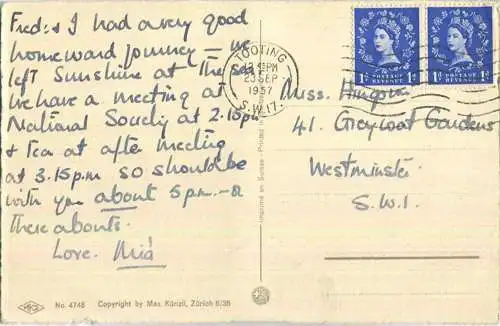 Fred:s I had a very good
homeward journey - we
left Sunshine at the sea
we have a meeting at
National Society at 2.15pm
& tea at after meeting
at 3.15 p.m. so should be
with you about 5 p.m. - or
there abouts.
Love. Mia
No. 4748 Copyright by Max Künzli, Zürich 6/38
Imprimé en Suisse - Printed in
TOOTING
12 45 PM
23 SEP
1957
S.W.17.
1D POSTAGE REVENUE 1D
1D POSTAGE REVENUE 1D
Miss.
41. Greycoat Gardens
Westminster
S.W.1.